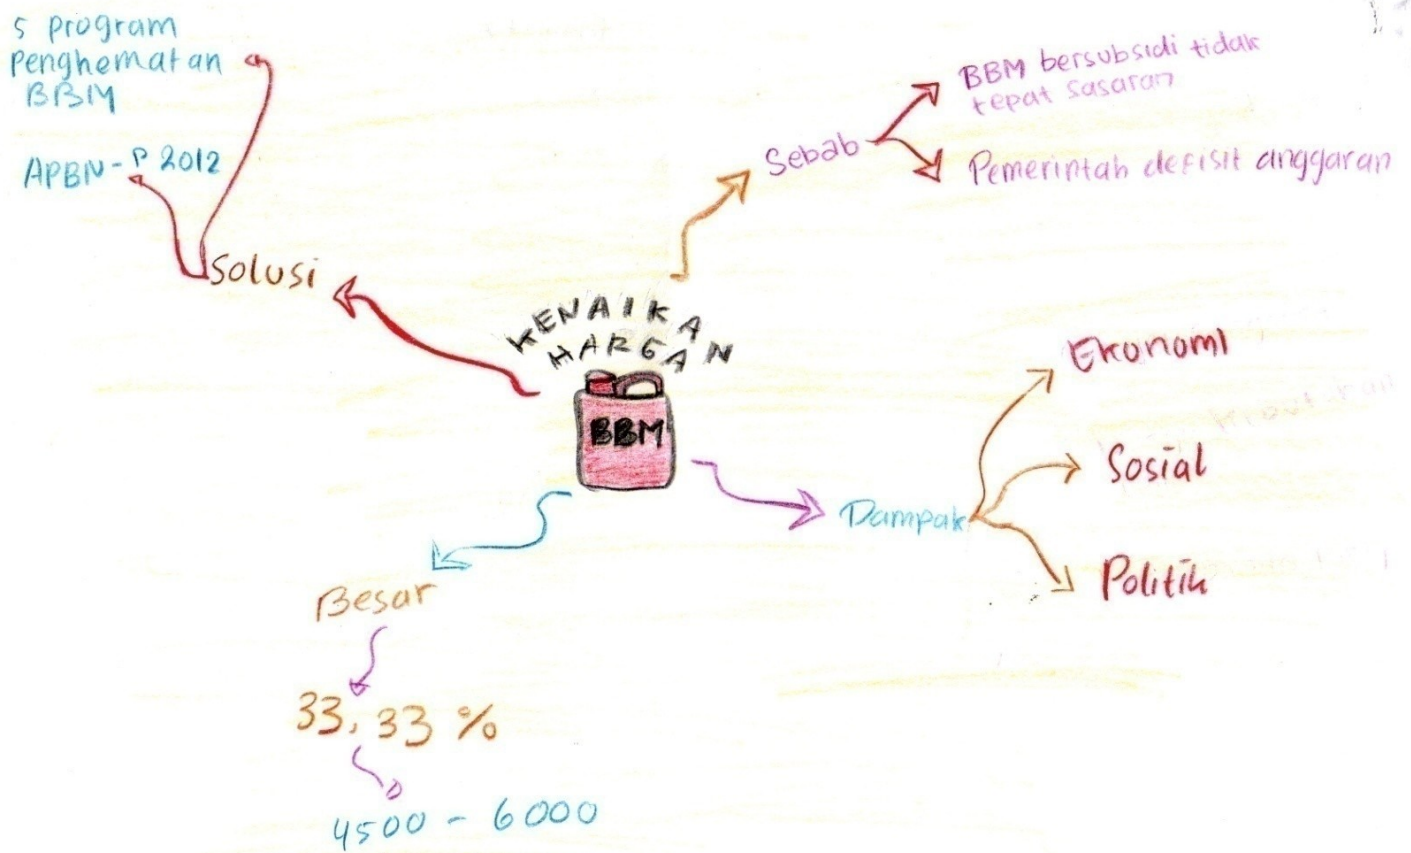 5 program
Penghematan
BBM
APBN-P 2012
Solusi
KENAIKAN
HARGA
BBM
Sebab
BBM bersubsidi tidak
tepat sasaran
Pemerintah defisit anggaran
Dampak
Ekonomi
Sosial
Politik
Besar
33,33 %
4500 - 6000